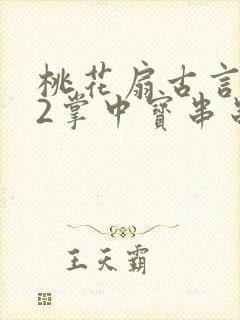 桃花扇古言
2掌中寳串
王天霸